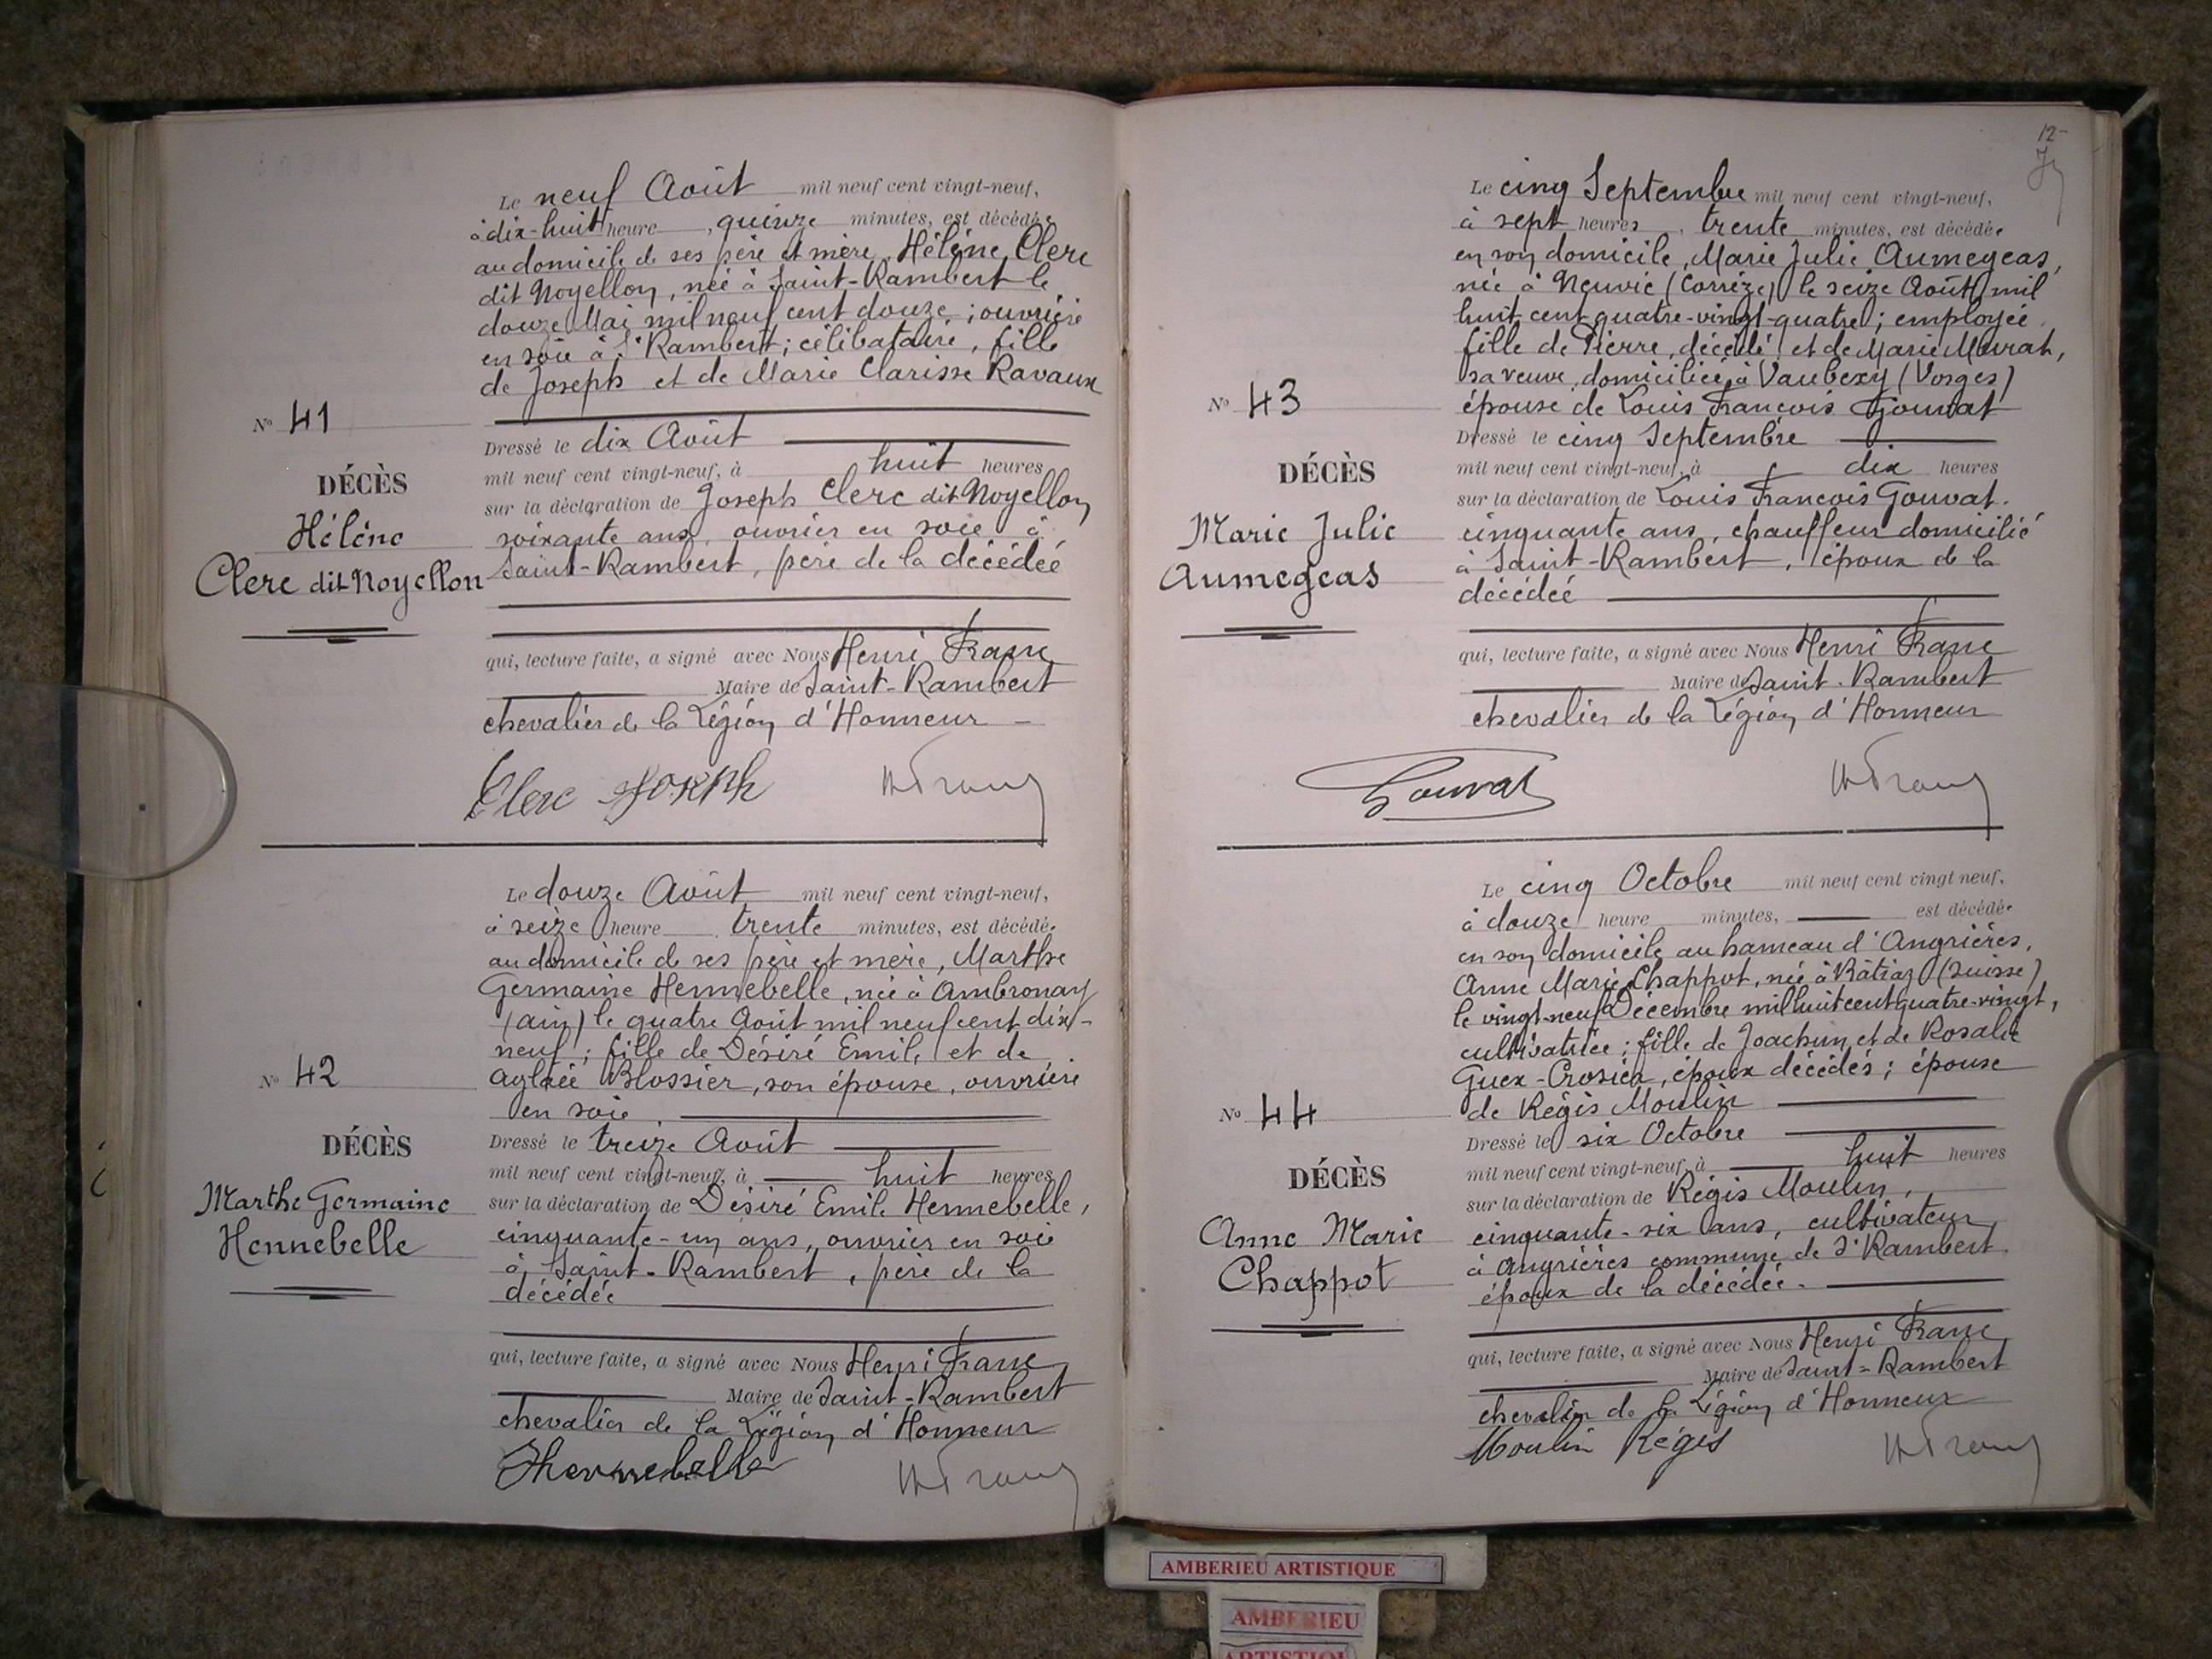 Le neuf Août mil neuf cent vingt-neuf,
à dix-huit heure, quinze minutes, est décédée
au domicile de ses père et mère, Hélène Clerc
dit Noyellon, née à Saint-Rambert le
douze Mai mil neuf cent douze ; ouvrière
en soie à St Rambert ; célibataire, fille
de Joseph et de Marie Clarisse Ravaux
No 41
Dressé le dix Août
mil neuf cent vingt-neuf, à huit heures
DÉCÈS
sur la déclaration de Joseph Clerc dit Noyellon
Hélène
soixante ans, ouvrier en soie à
Clerc dit Noyellon
Saint-Rambert, père de la décédée
qui, lecture faite, a signé avec Nous Henri Franc
Maire de Saint-Rambert
chevalier de la Légion d'Honneur
Clerc Joseph
H Franc
Le douze Août mil neuf cent vingt-neuf,
à seize heure trente minutes, est décédée
au domicile de ses père et mère, Marthe
Germaine Hennebelle, née à Ambronay
(Ain) le quatre Août mil neuf cent dix-
neuf ; fille de Désiré Emile et de
Aglaée Blossier, son épouse, ouvrière
en soie
No 42
Dressé le treize Août
DÉCÈS
mil neuf cent vingt-neuf, à huit heures
Marthe Germaine
sur la déclaration de Désiré Emile Hennebelle,
Hennebelle
cinquante-un ans, ouvrier en soie
à Saint-Rambert, père de la
décédée
qui, lecture faite, a signé avec Nous Henri Franc
Maire de Saint-Rambert
chevalier de la Légion d'Honneur
Hennebelle
H Franc
12
Le cinq Septembre mil neuf cent vingt-neuf,
à sept heures, trente minutes, est décédée
en son domicile, Marie Julie Aumegeas,
née à Neuvic (Corrèze) le seize Août mil
huit cent quatre-vingt-quatre ; employée
fille de Pierre, décédé et de Marie Mourat,
sa veuve, domiciliée à Vaubexy (Vosges)
No 43
épouse de Louis François Gouvat
Dressé le cinq Septembre
DÉCÈS
mil neuf cent vingt-neuf, à dix heures
sur la déclaration de Louis François Gouvat.
Marie Julie
cinquante ans, chauffeur domicilié
Aumegeas
à Saint-Rambert, époux de la
décédée
qui, lecture faite, a signé avec Nous Henri Franc
Maire de Saint-Rambert
chevalier de la Légion d'Honneur
Gouvat
H Franc
Le cinq Octobre mil neuf cent vingt neuf,
à douze heure minutes, est décédée
en son domicile au hameau d'Angrières,
Anne Marie Chappot, née à Bâtiaz (Suisse)
le vingt-neuf Décembre mil huit cent quatre-vingt,
cultivatrice ; fille de Joachim et de Rosalie
Guex-Crosier, époux décédés ; épouse
de Régis Moulin
No 44
Dressé le six Octobre
DÉCÈS
mil neuf cent vingt-neuf, à huit heures
sur la déclaration de Régis Moulin,
Anne Marie
cinquante-six ans, cultivateur
Chappot
à Angrières commune de St Rambert.
époux de la décédée.
qui, lecture faite, a signé avec Nous Henri Franc
Maire de Saint-Rambert
chevalier de la Légion d'Honneur
Moulin Régis
H Franc
AMBERIEU ARTISTIQUE
AMBERIEU
ARTISTIQUE